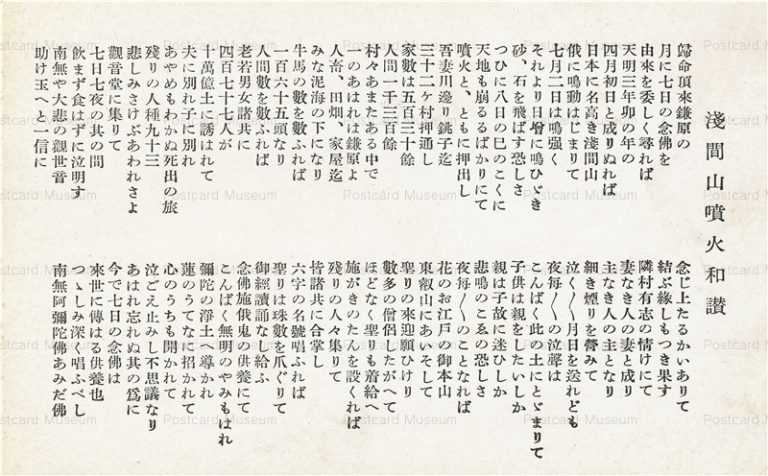 淺間山噴火和讃
歸命頂來鎌原の
月に七日の念佛を
由來を委しく尋れば
天明三年卯の年の
四月初日と成りぬれば
日本に名高き淺間山
俄に鳴動はじまりて
七月二日は鳴强く
それより日增に鳴ひゞき
砂、石を飛ばす恐しさ
つひに八日の巳のこくに
天地も崩るるばかりにて
噴火と、ともに押出し
吾妻川邊り銚子迄
三十二ケ村押通し
家數は五百三十餘
人間一千三百餘
村々あまたある中で
一のあはれは鎌原よ
人畜、田畑、家屋迄
みな泥海の下になり
牛馬の數を數ふれば
一百六十五頭なり
人間數を數ふれば
老若男女諸共に
四百七十七人が
十萬億土に誘はれて
夫に別れ子に別れ
あやめもわかぬ死出の旅
殘りの人種九十三
悲しみさけぶあわれさよ
觀音堂に集りて
七日七夜の其の間
飮まず食はずに泣明す
南無や大悲の觀世音
助け玉へと一信に
念じ上たるかいありて
結ぶ緣しもつき果す
隣村有志の情けにて
妻なき人の妻と成り
主なき人の主となり
細き煙りを營みて
泣く〳〵月日を送れども
夜每〳〵の泣聲は
こんぱく此の土にとゞまりて
子供は親をしたいしか
親は子故に迷ひしか
悲鳴のこゑの恐しさ
夜每〳〵のことなれば
花のお江戸の御本山
東叡山にあいそして
聖りの來迎願ひけり
數多の僧侶したがへて
ほどなく聖りも着給へ
施がきのた人を設くれば
殘りの人々集りて
皆諸共に合掌し
六字の名號唱ふれば
聖りは珠數を爪ぐりて
御經讀誦なし給ふ
念佛施俄鬼の供養にて
こんぱく無明のやみもはれ
彌陀の淨土へ導かれ
蓮のうてなに招かれて
心のうちも開かれて
泣ごえ止みし不思議なり
あはれ忘れぬ其の爲に
今で七日の念佛は
來世に傳はる供養也
つゝしみ深く唱ふべし
南無阿彌陀佛あみだ佛
Postcard Museum